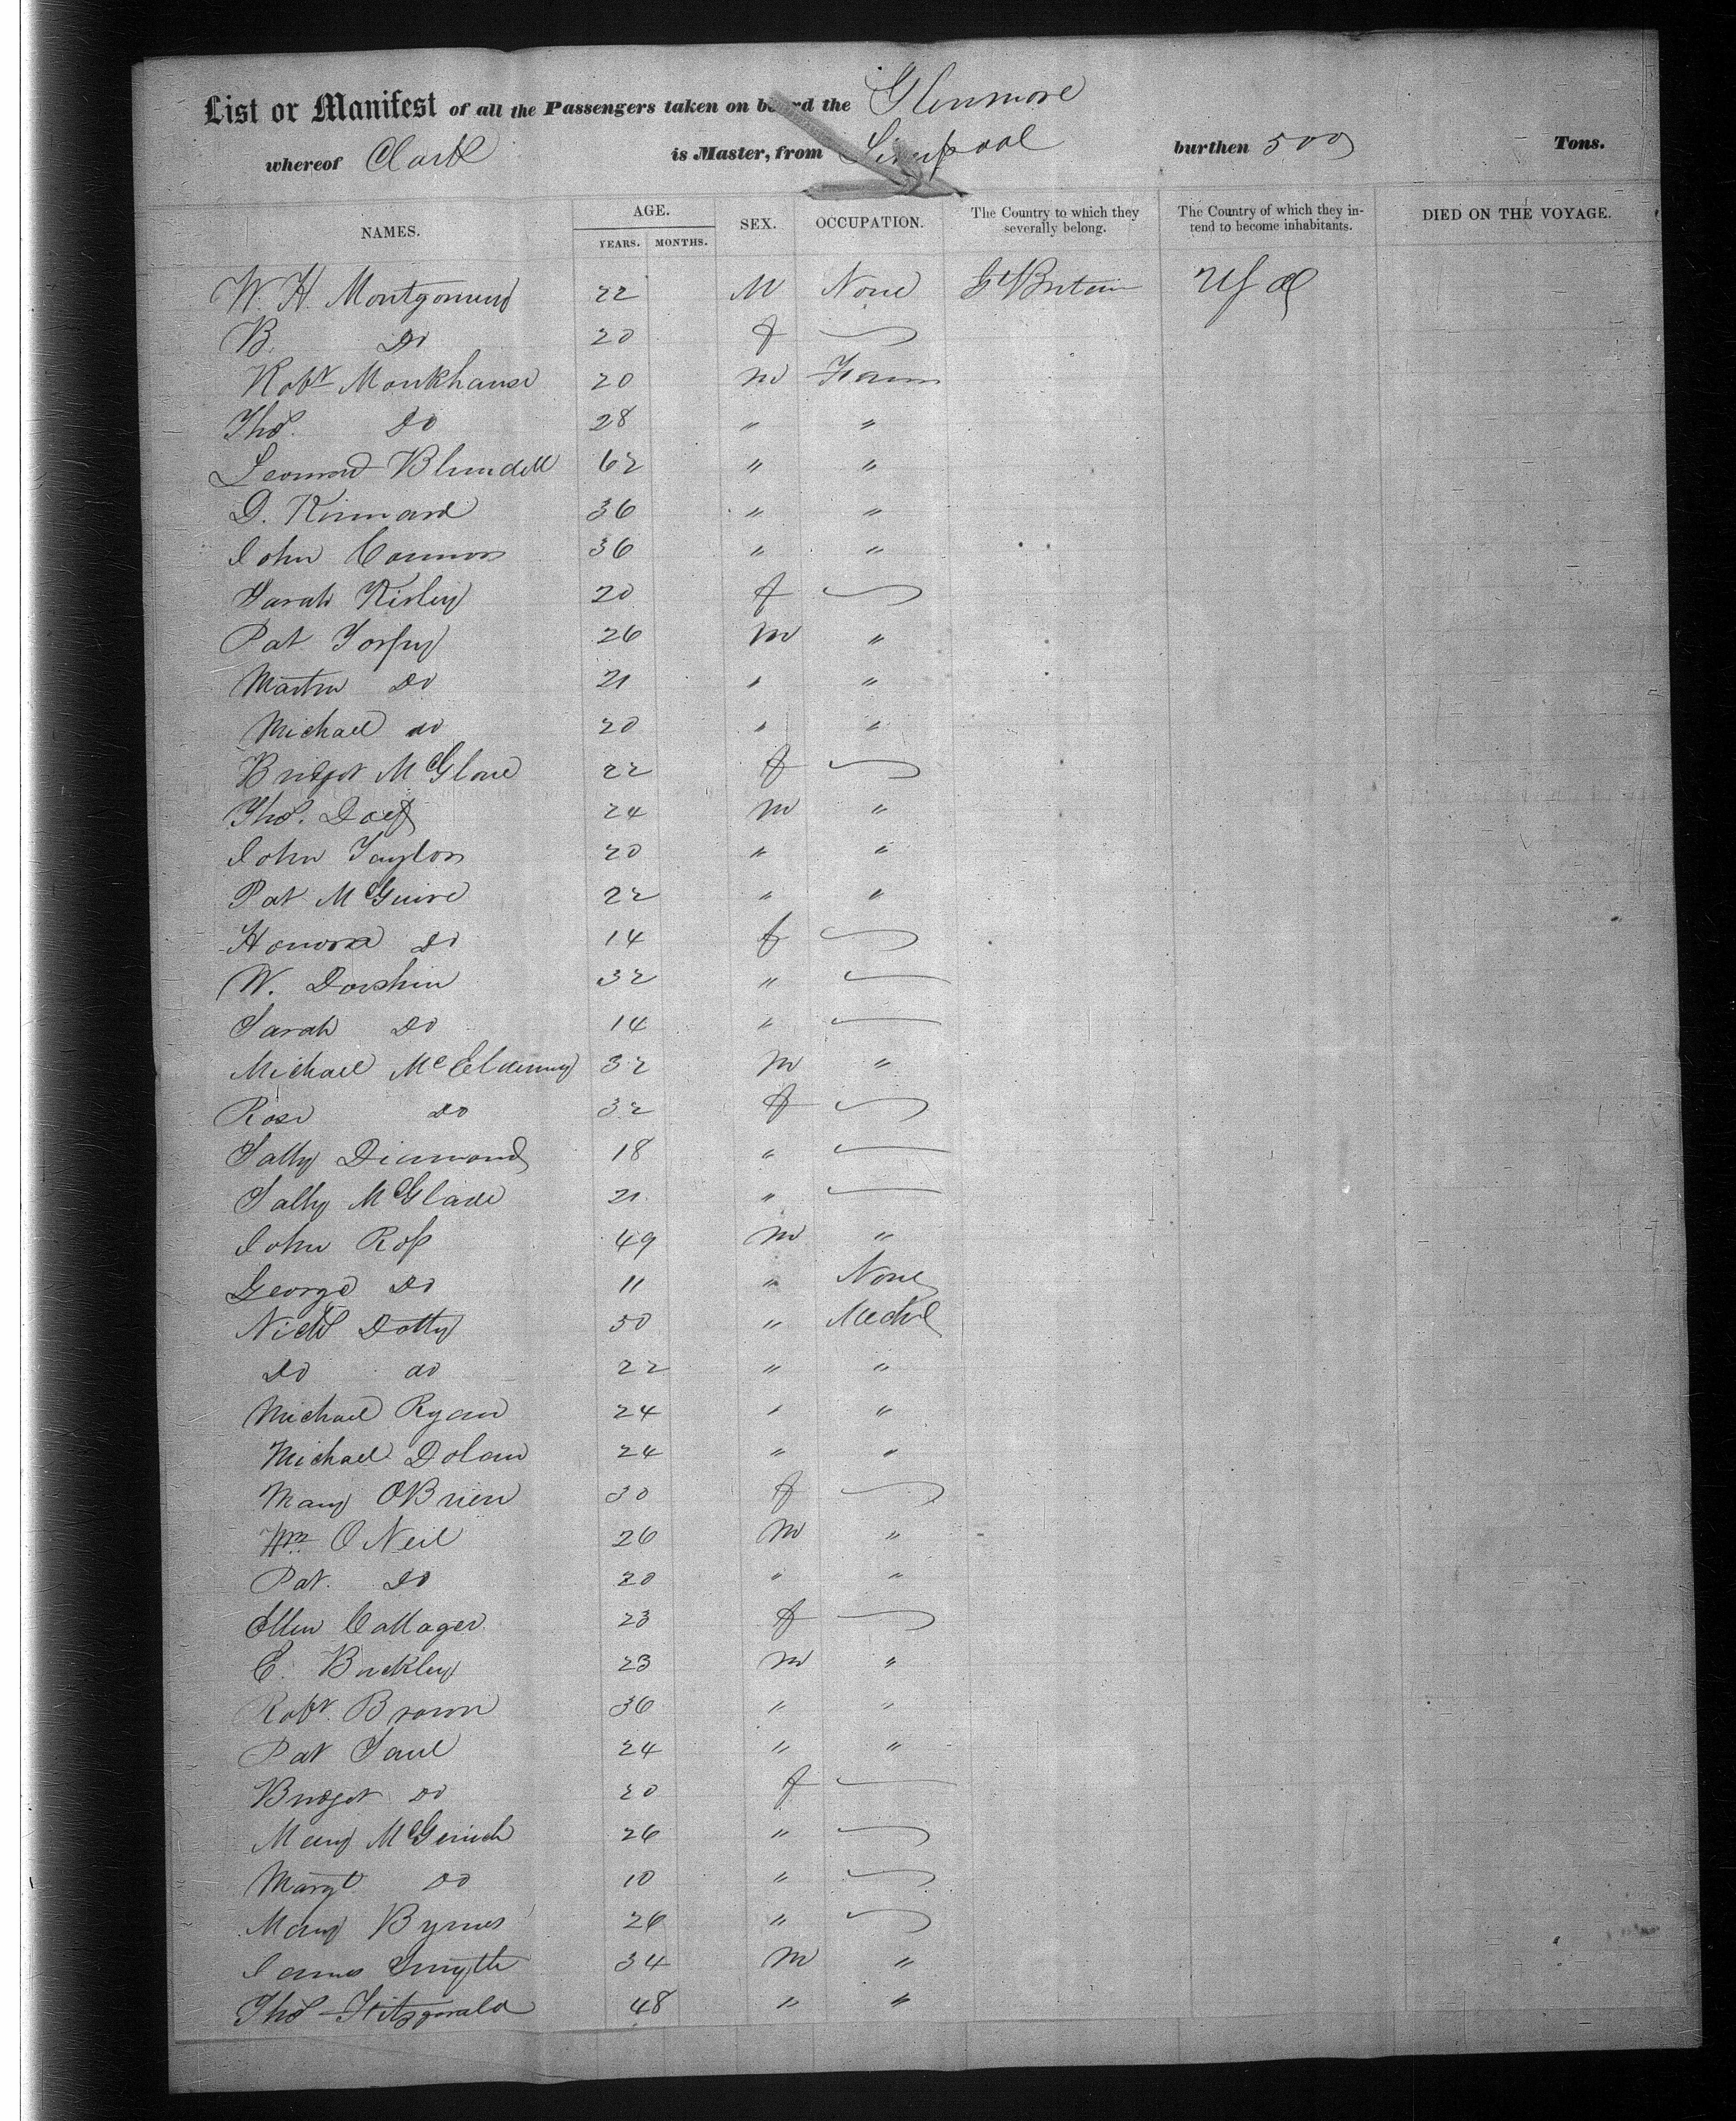 List or Manifest of all the Passengers taken on board the Glenmore
whereof Clark is Master, from Liverpool burthen 500 Tons.
NAMES. AGE. YEARS. MONTHS. SEX. OCCUPATION. The Country to which they severally belong. The Country of which they intend to become inhabitants. DIED ON THE VOYAGE.
W. H. Montgomery 22 M None Gt Britain
B. Do 20 f
Robt Monkhouse 20 m Farm
Thos. Do 28 " "
Leonard Blundell 62 " "
D. Kinnard 36 " "
John Connors 36 " "
Sarah Kisley 20 f
Pat Torpey 26 m "
Martin Do 21 " "
Michael do 20 " "
Bridget McGlone 22 f
Thos. 24 m "
John Taylor 20 " "
Pat McGuire 22 " "
Honora Do 14 f
W. Dorshin 32 "
Sarah Do 14 "
Michael 32 m "
Rose Do 32 f
Sally Diamond 18 "
Sally McGlade 21 "
John Ross 49 m "
George Do 11 " None
Nichs Dotty 50 " Mechc
Do do 22 " "
Michael Ryan 24 " "
Michael Dolan 24 " "
Mary OBrien 30 f
Wm O Neil 26 m "
Pat. Do 20 " "
Ellen Callager 23 f
E. Buckley 23 m "
Robt. Brown 36 " "
Pat Saul 24 " "
Bridget Do 20 f
Mary 26 "
Margt Do 10 "
Mary Byrnes 26 "
James Smyth 34 m "
Thos Fitzgerald 48 " "